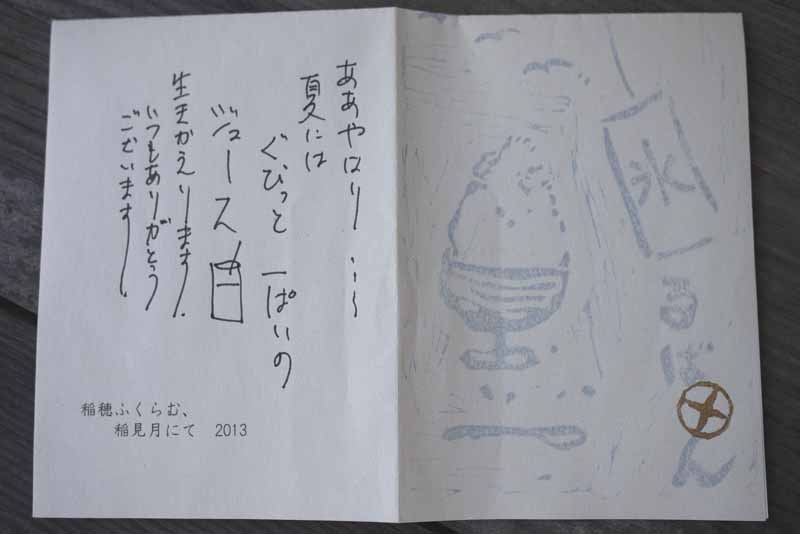 ああやはり…〜
夏には
ぐびっと一ぱいの
ジュース
生きかえります!
いつもありがとう
ございます!
稲穂ふくらむ、
稲見月にて 2013
氷
るばん